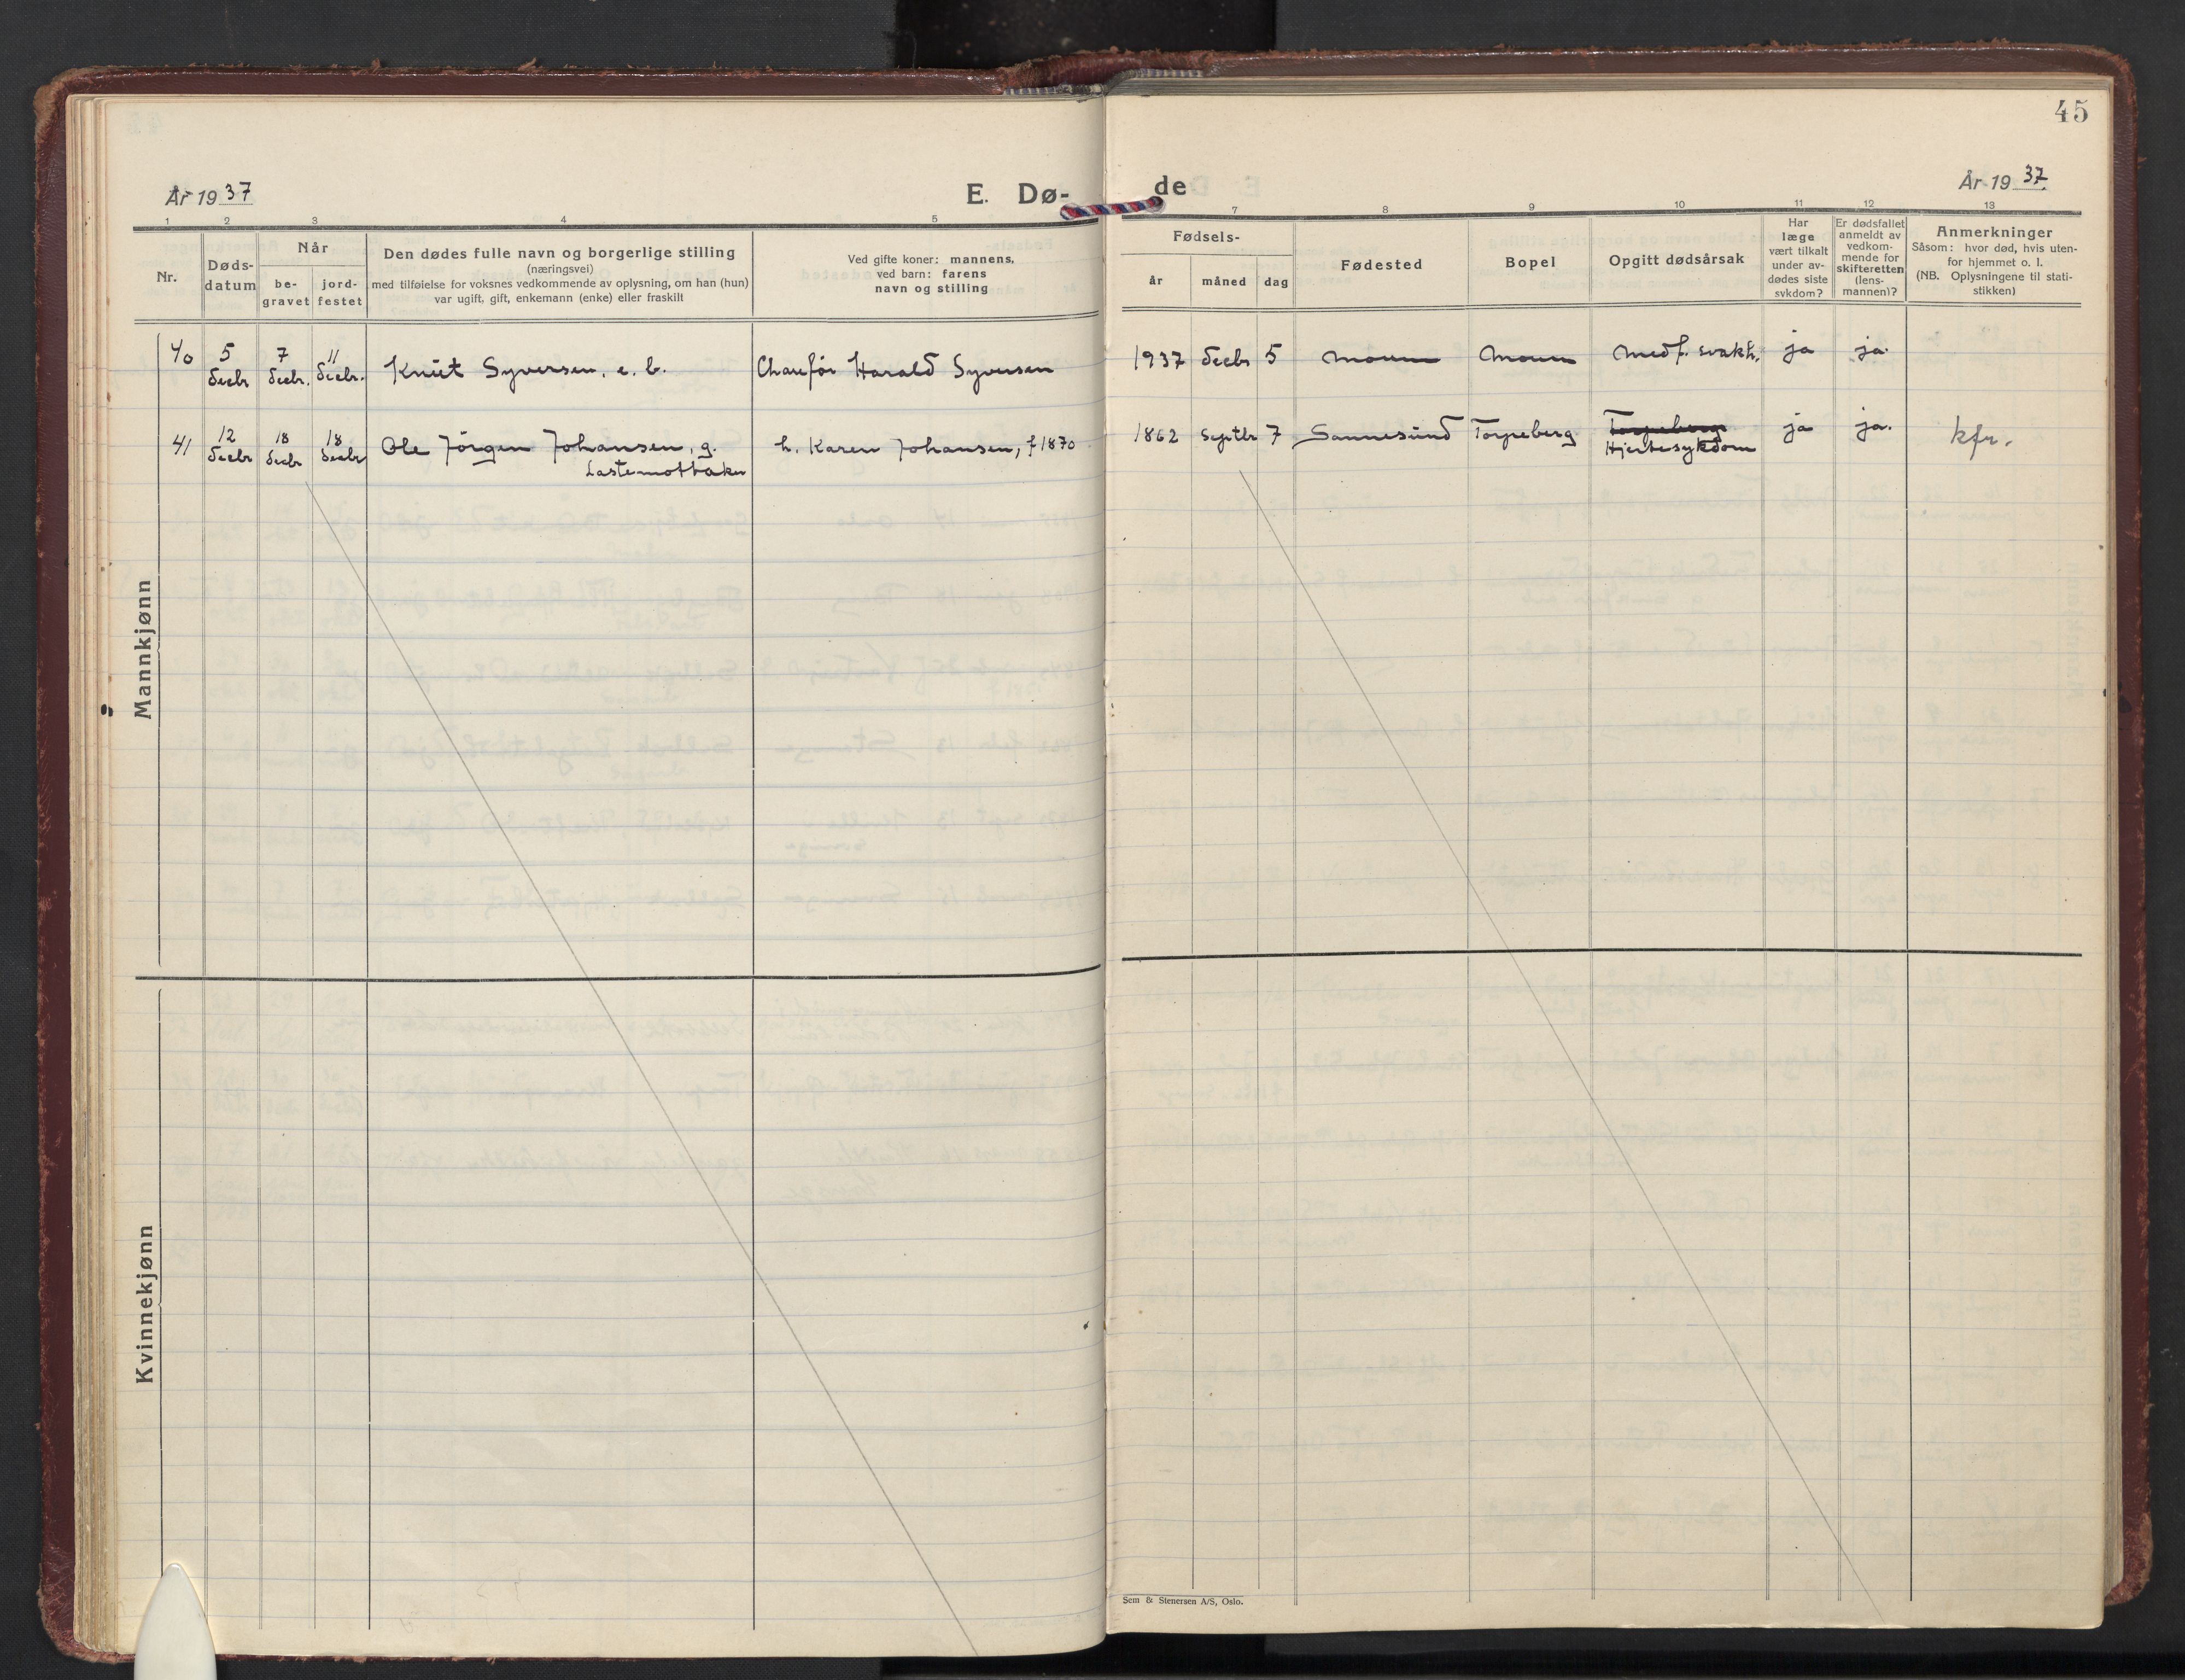 45
År 1937
E. Dø-
de
År 1937
1 2 3 4 5 7 8 9 10 11 12 13
Nr.
Døds-
datum
Når
be-
gravet
jord-
festet
Den dødes fulle navn og borgerlige stilling
(næringsvei)
med tilføielse for voksnes vedkommende av oplysning, om han (hun)
var ugift, gift, enkemann (enke) eller fraskilt
Ved gifte koner: mannens,
ved barn: farens
navn og stilling
Fødsels-
år måned dag
Fødested
Bopel
Opgitt dødsårsak
Har
læge
vært tilkalt
under av-
dødes siste
sykdom?
Er dødsfallet
anmeldt av
vedkom-
mende for
skifteretten
(lens-
mannen)?
Anmerkninger
Såsom: hvor død, hvis uten-
for hjemmet o. l.
(NB. Oplysningene til stati-
stikken)
Mannkjønn
40 5 decbr 7 decbr. 11 decbr. Knut Syversen, e. b. Chauffør Harald Syversen 1937 decbr 5 Moum Moum Medf. svakh. ja ja.
41 12 decbr 18 decbr 18 decbr Ole Jörgen Johansen, g. h. Karen Johansen, f 1870 1862 Septbr 7 Sannesund Torpeberg Torpeberg ja ja. kfr.
Lastemottaker Hjertesykdom
Kvinnekjønn
Sem & Stenersen A/S, Oslo.